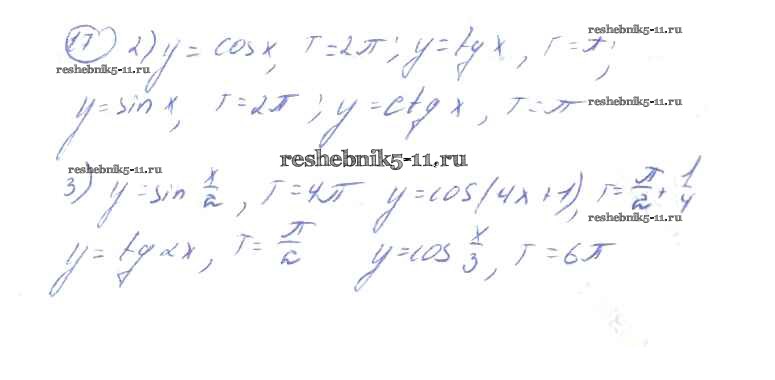 17) 2) y = cosx, T=2π; y=tgx, T=π;
reshebnik5-11.ru
reshebnik5-11.ru
y=sinx, T=2π; y=ctgx, T=π
reshebnik5-11.ru
reshebnik5-11.ru
reshebnik5-11.ru
3) y=sin x/2, T=4π y=cos(4x+1), T=π/2+1/4
reshebnik5-11.ru
y=tg2x, T=π/2 y=cos x/3, T=6π